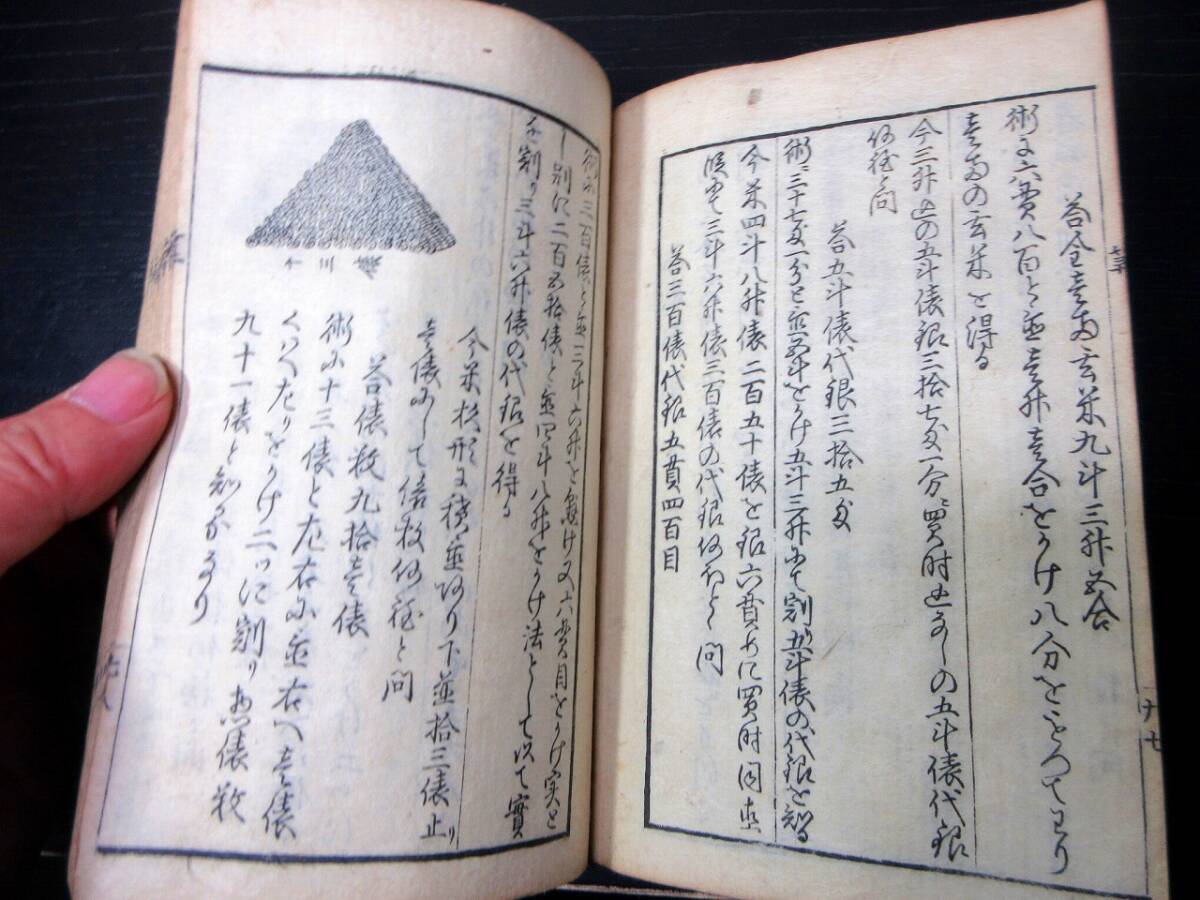 答全壱両玄米九斗三升五合
術に六貫八百と置壱升壱合をかけ八分をもつてわり
壱両の玄米を得る
今三升込の五斗俵銀三拾七匁一分に買時込なしの五斗俵代銀
何程と問
答五斗俵代銀三拾五匁
術ニ三十七匁一分と置五斗をかけ五斗三升にて割五斗俵の代銀を知る
今米四斗八升俵二百五十俵を銀六貫めに買時同直
段にて三斗六升俵三百俵の代銀何ほどと問
答三百俵代銀五貫四百目
術に三百俵と置三斗六升を懸け又六貫目をかけ実と
し別に二百五拾俵と置四斗八升をかけ法として以て実
を割り三斗六升俵の代銀を得る
十三俵
今米杉形に積置あり下並拾三俵止り
壱俵にして俵数何程と問
答俵数九拾壱俵
術に十三俵と左右に置右へ壱俵
くはへ左りをかけ二ツに割り惣俵数
九十一俵と知るなり